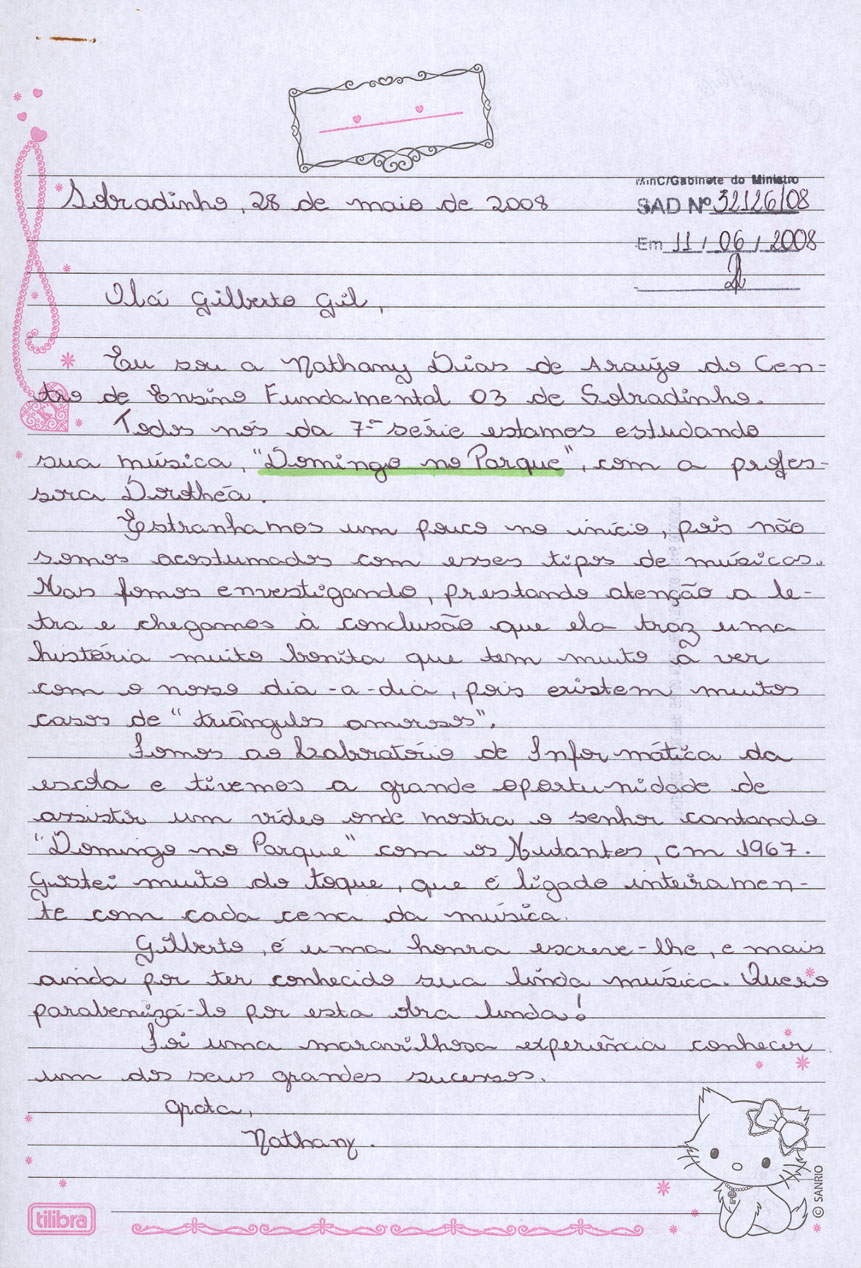 MinC/Gabinete do Ministro
Sobradinho, 28 de maio de 2008
SAD Nº 32126/08
Em 11 / 06 / 2008
Olá Gilberto Gil,
Eu sou a Nathany Dias de Araújo do Cen-
tro de Ensino Fundamental 03 de Sobradinho.
Todos nós da 7ª série estamos estudando
sua música, "Domingo no Parque", com a profes-
sora Dorothéa.
Estranhamos um pouco no início, pois não
somos acostumados com esses tipos de músicas.
Mas fomos envestigando, prestando atenção a le-
tra e chegamos à conclusão que ela traz uma
história muito bonita que tem muito a ver
com o nosso dia-a-dia, pois existem muitos
casos de "triângulos amorosos".
Fomos ao Laboratório de Informática da
escola e tivemos a grande oportunidade de
assistir um vídeo onde mostra o senhor cantando
"Domingo no Parque" com os Mutantes, em 1967.
Gostei muito do toque, que é ligado inteiramen-
te com cada cena da música.
Gilberto, é uma honra escreve-lhe, e mais
ainda por ter conhecido sua linda música. Quero
parabenizá-lo por esta obra linda!
Foi uma maravilhosa experiência conhecer
um dos seus grandes sucessos.
Grata,
Nathany.
tilibra
© SANRIO